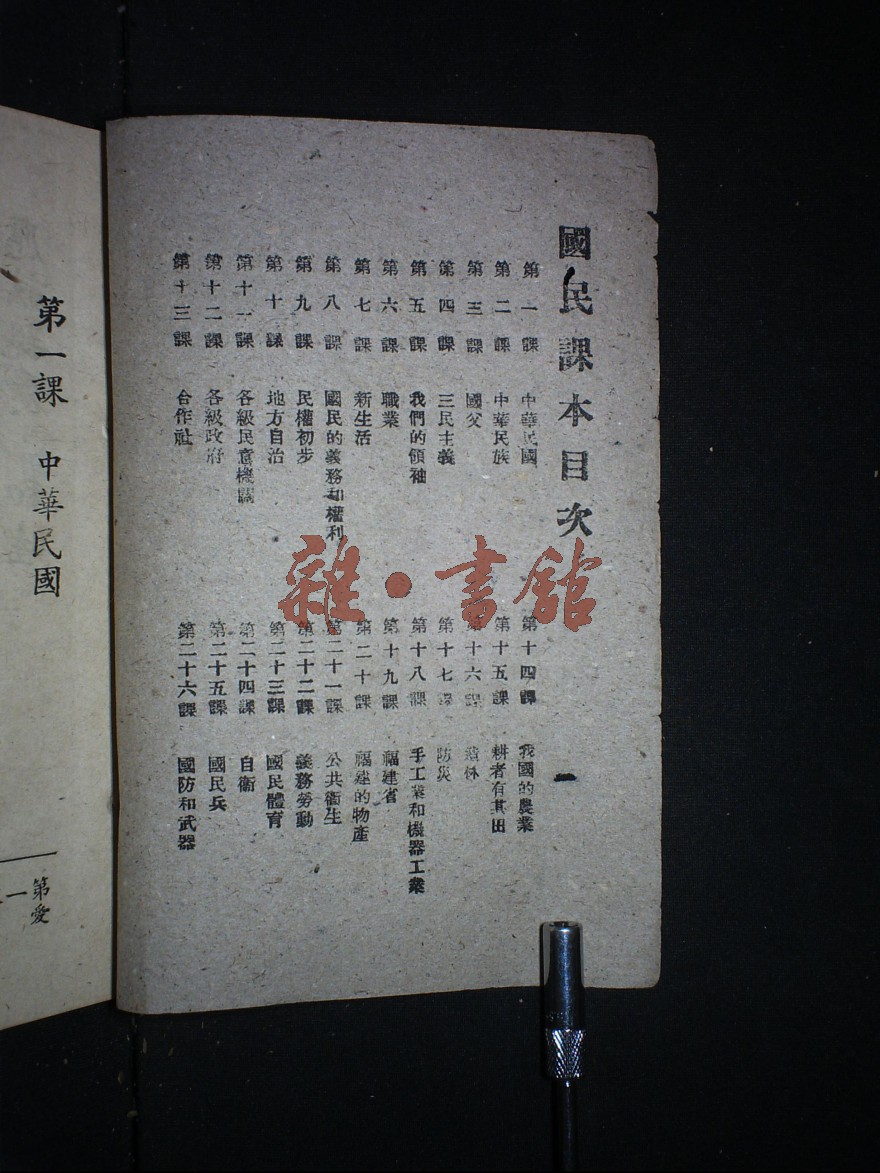 國民課本目次
第一課　中華民國
第二課　中華民族
第三課　國父
第四課　三民主義
第五課　我們的領袖
第六課　職業
第七課　新生活
第八課　國民的義務和權利
第九課　民權初步
第十課　地方自治
第十一課　各級民意機關
第十二課　各級政府
第十三課　合作社
第十四課　我國的農業
第十五課　耕者有其田
第十六課　造林
第十七課　防災
第十八課　手工業和機器工業
第十九課　福建省
第二十課　福建的物產
第二十一課　公共衞生
第二十二課　義務勞動
第二十三課　國民體育
第二十四課　自衞
第二十五課　國民兵
第二十六課　國防和武器
一
雜·書館
第一課　中華民國
第愛
一